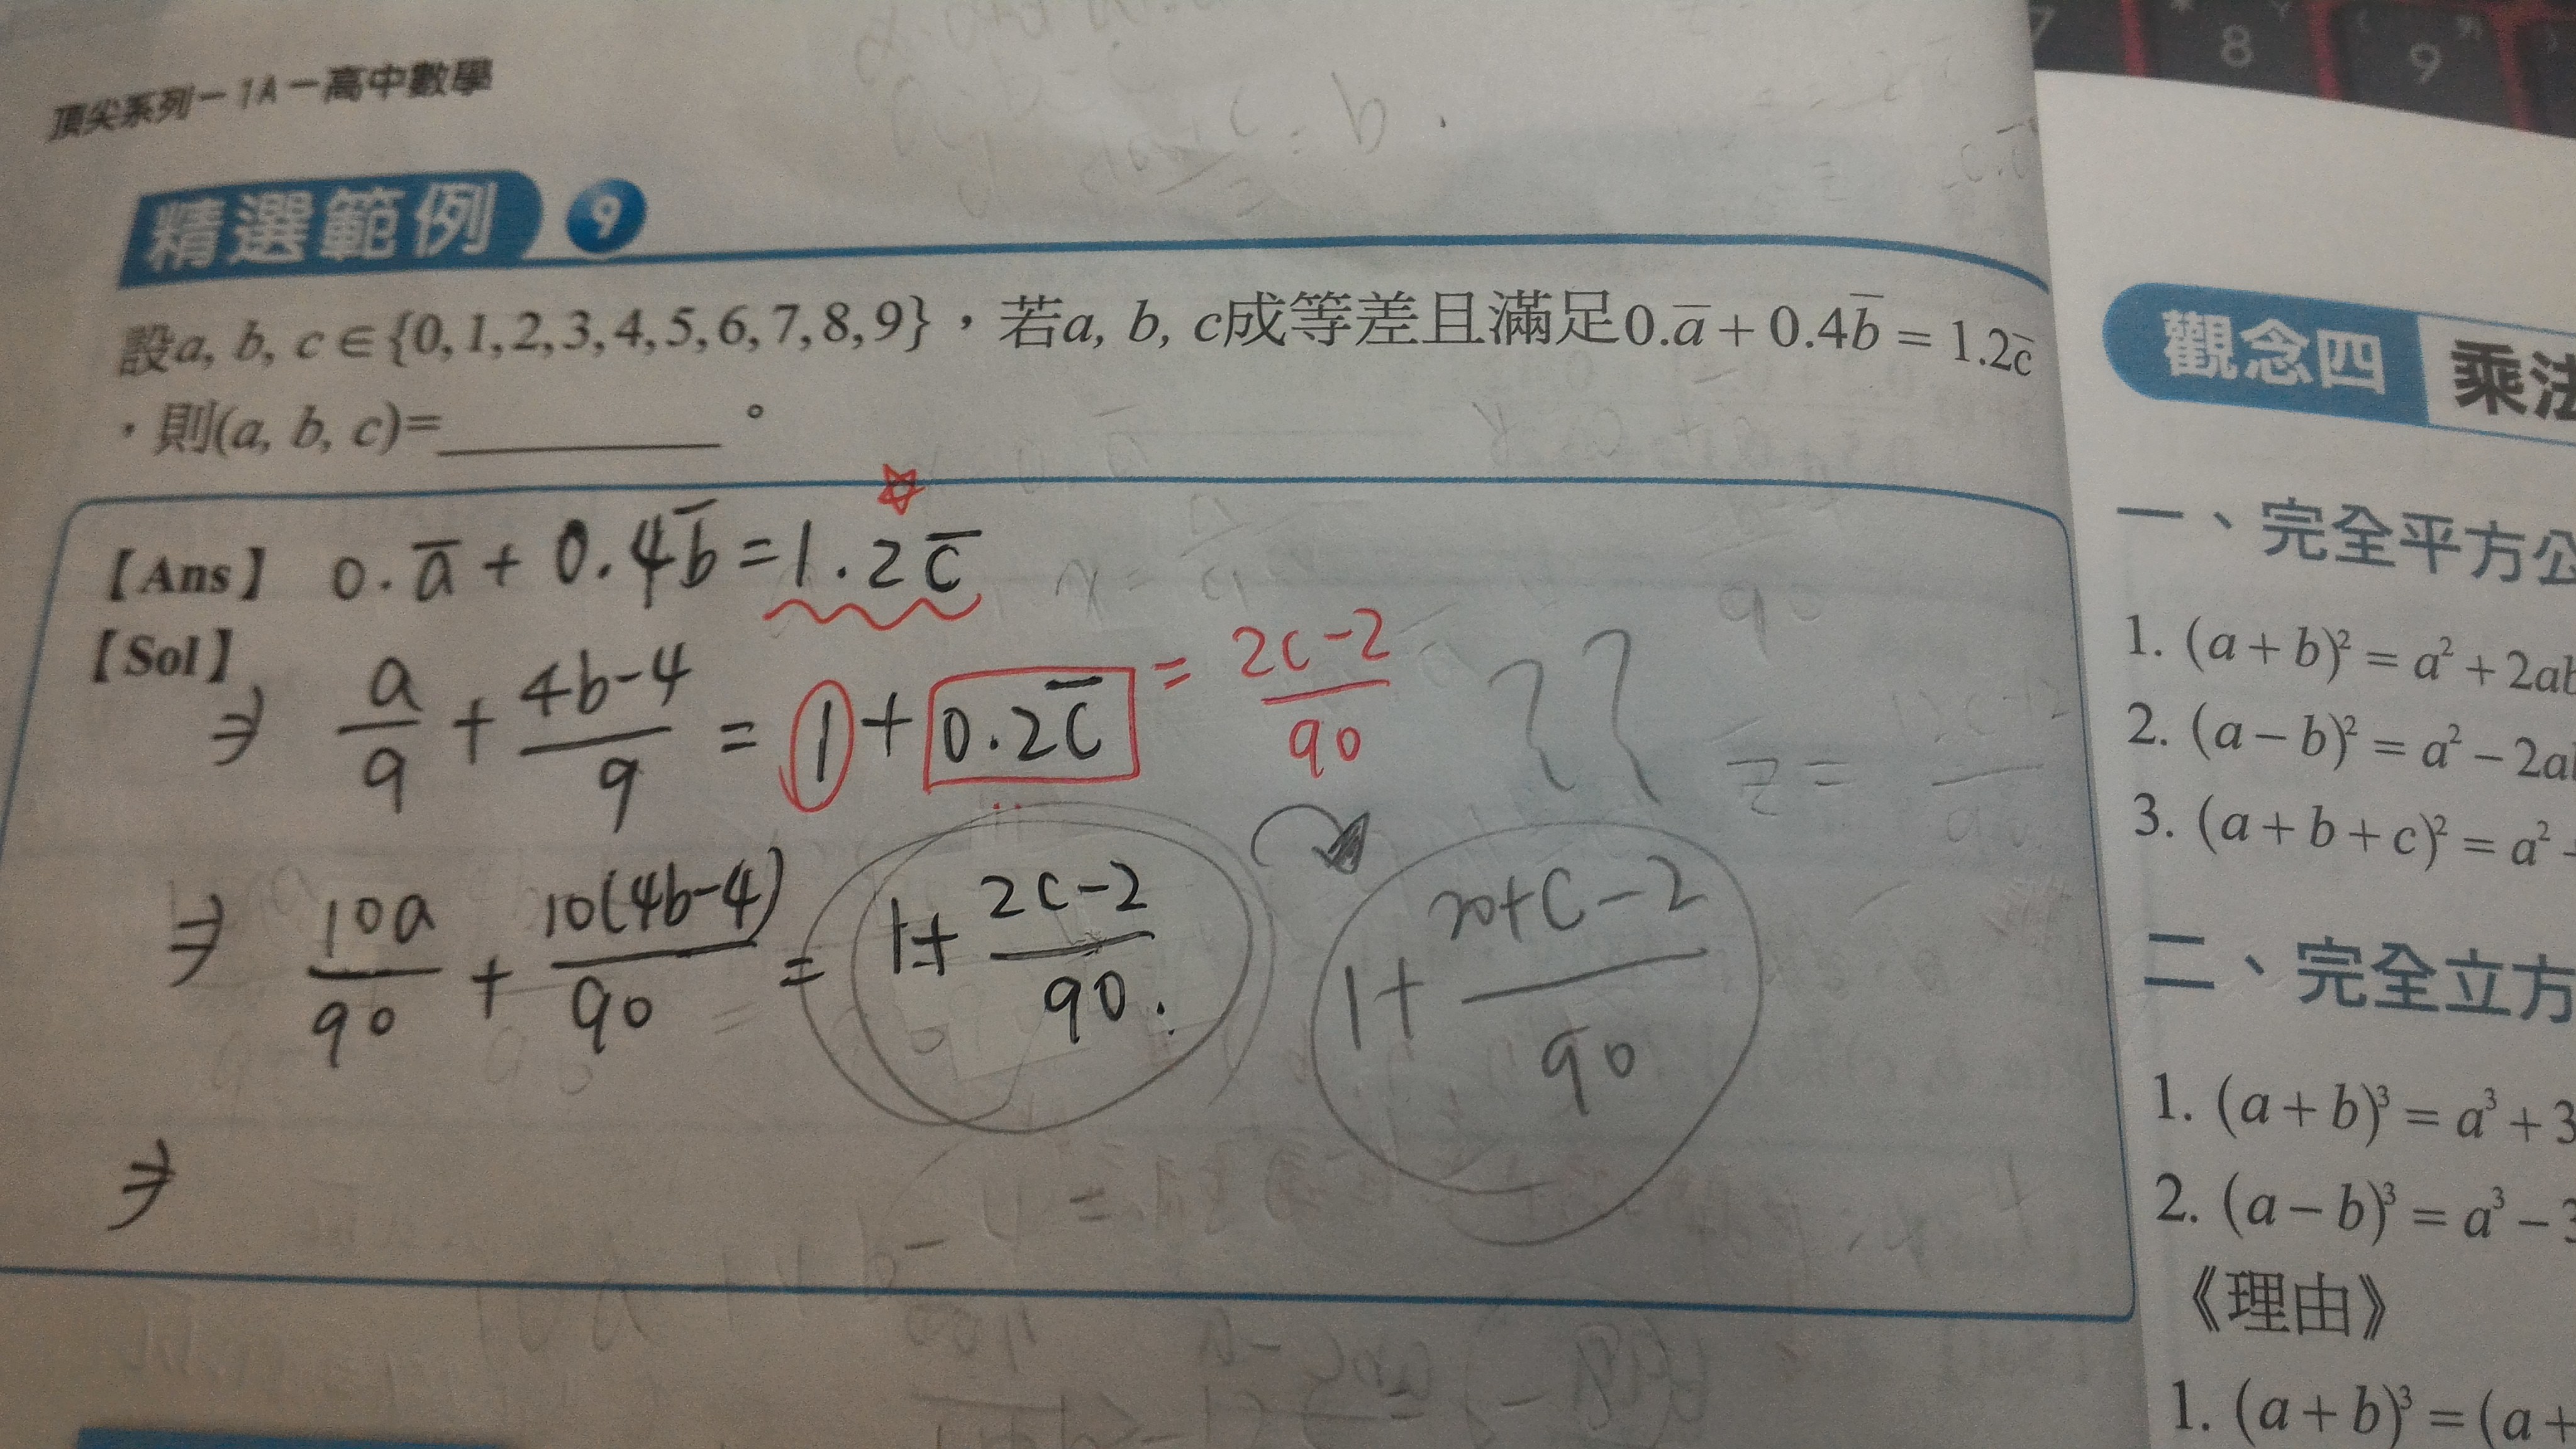 頂尖系列－1A－高中數學
精選範例 9
設a, b, c ∈ {0, 1, 2, 3, 4, 5, 6, 7, 8, 9}，若a, b, c成等差且滿足0.a̅ + 0.4b̅ = 1.2c̅
，則(a, b, c)=__________。
【Ans】 0.a̅ + 0.4b̅ = 1.2c̅
【Sol】
⇒ a/9 + 4b-4/9 = 1 + 0.2c̅ = 2c-2/90
⇒ 10a/90 + 10(4b-4)/90 = 1+ 2c-2/90 1+ 20+c-2/90
⇒
7 8 9
觀念四 乘法
一、完全平方公
1. (a + b)² = a² + 2ab
2. (a − b)² = a² − 2a
3. (a + b + c)² = a²
二、完全立方
1. (a + b)³ = a³ + 3
2. (a − b)³ = a³ −
《理由》
1. (a + b)³ = (a +